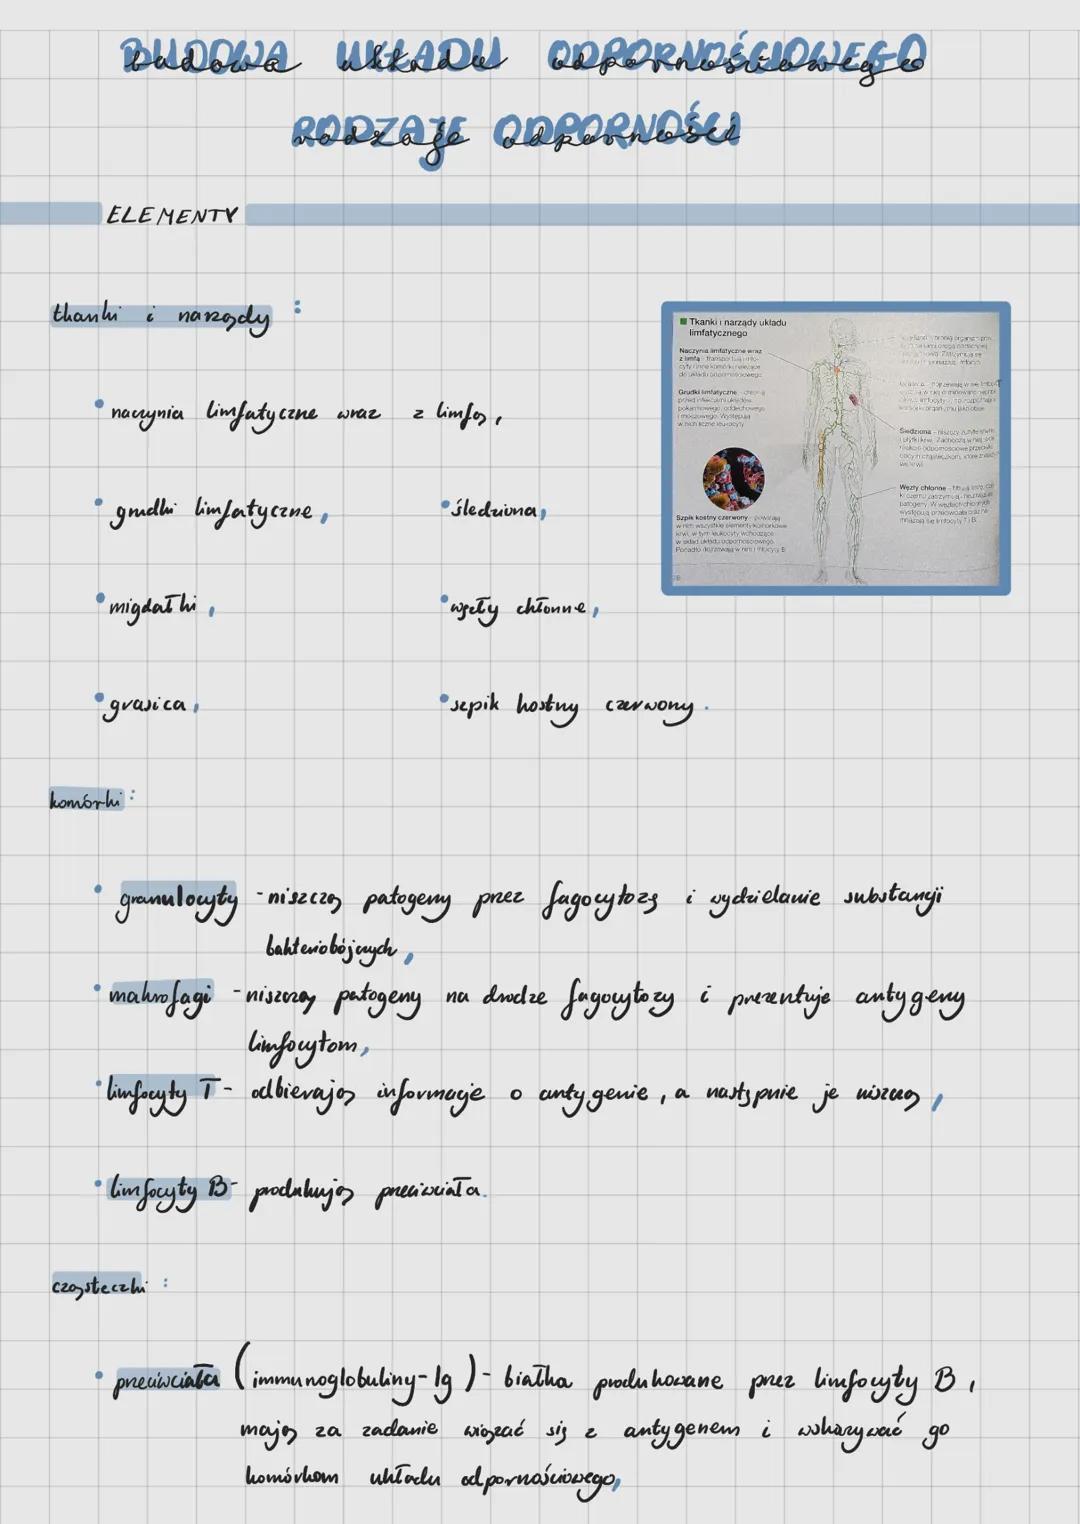 BUDOWA UKŁADU ODPORNOŚCIOWEGO
budowa układu odpornościowego
RODZAJE ODPORNOŚCI
rodzaje odporności
ELEMENTY
tkanki i narządy :
• naczynia limfatyczne wraz z limfą,
• grudki limfatyczne,
• śledziona,
• migdałki,
• węzły chłonne,
• grasica,
• szpik kostny czerwony.
Tkanki i narządy układu
limfatycznego
Naczynia limfatyczne wraz
z limfą – transportują limfo-
cyty i inne komórki należące
do układu odpornościowego
Grudki limfatyczne – chronią
przed infekcjami układów
pokarmowego, oddechowego
i moczowego. Występują
w nich liczne leukocyty
Szpik kostny czerwony – powstają
w nim wszystkie elementy komórkowe
krwi, w tym leukocyty wchodzące
w skład układu odpornościowego.
Ponadto dojrzewają w nim limfocyty B
Śledziona – niszczy zużyte
i płytki krwi. Zachodzą w niej
Węzły chłonne – filtrują limfę,
patogeny. W węzłach chłonnych
limfocyty T i B.
komórki :
• granulocyty - niszczą patogeny przez fagocytozę i wydzielanie substancji
bakteriobójczych,
• makrofagi - niszczą patogeny na drodze fagocytozy i prezentuje antygeny
limfocytom,
• limfocyty T - odbierają informacje o antygenie, a następnie je niszczą,
• limfocyty B - produkują przeciwciała.
cząsteczki :
• przeciwciała (immunoglobuliny - Ig) - białka produkowane przez limfocyty B,
mają za zadanie wiązać się z antygenem i wskazywać go
komórkom układu odpornościowego,